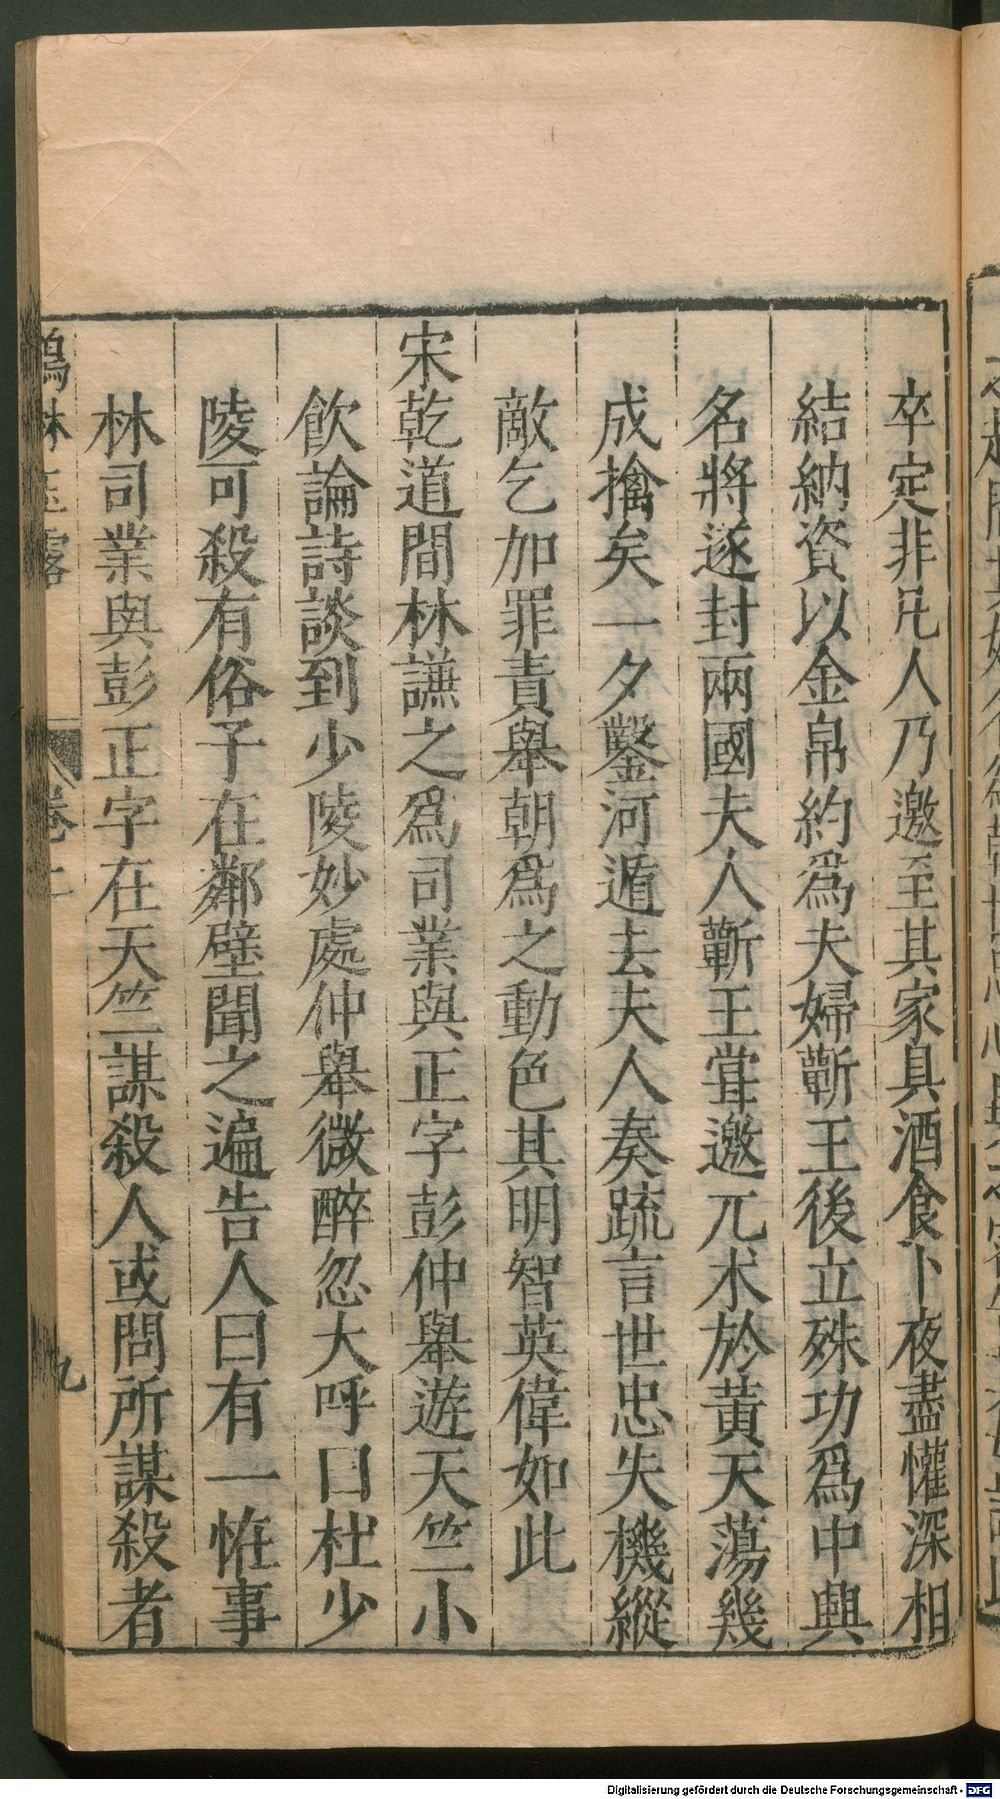 卒定非凡人乃邀至其家具酒食卜夜盡懽深相
結納資以金帛約爲夫婦蘄王後立殊功爲中興
名將遂封兩國夫人蘄王甞邀兀术於黄天蕩幾
成擒矣一夕鑿河遁去夫人奏疏言世忠失機縱
敵乞加罪責舉朝爲之動色其明智英偉如此
宋乾道間林謙之爲司業與正字彭仲舉遊天竺小
飲論詩談到少陵妙處仲舉微醉忽大呼曰杜少
陵可殺有俗子在鄰壁聞之遍告人曰有一恠事
林司業與彭正字在天竺謀殺人或問所謀殺者
鶴林玉露 卷二 九
Digitalisierung gefördert durch die Deutsche Forschungsgemeinschaft - DFG